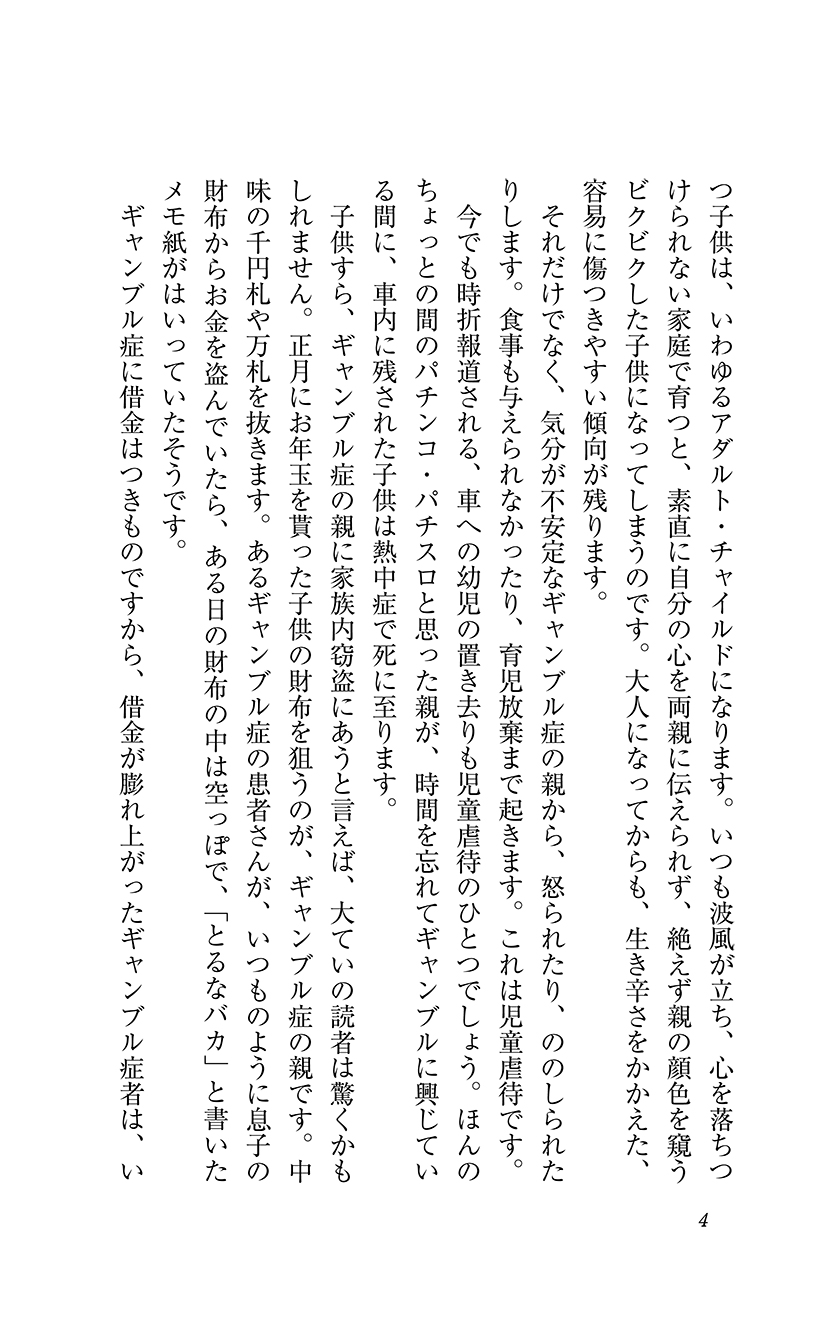 つ子供は、いわゆるアダルト・チャイルドになります。いつも波風が立ち、心を落ちつ
けられない家庭で育つと、素直に自分の心を両親に伝えられず、絶えず親の顔色を窺う
ビクビクした子供になってしまうのです。大人になってからも、生き辛さをかかえた、
容易に傷つきやすい傾向が残ります。
それだけでなく、気分が不安定なギャンブル症の親から、怒られたり、ののしられた
りします。食事も与えられなかったり、育児放棄まで起きます。これは児童虐待です。
今でも時折報道される、車への幼児の置き去りも児童虐待のひとつでしょう。ほんの
ちょっとの間のパチンコ・パチスロと思った親が、時間を忘れてギャンブルに興じてい
る間に、車内に残された子供は熱中症で死に至ります。
子供すら、ギャンブル症の親に家族内窃盗にあうと言えば、大ていの読者は驚くかも
しれません。正月にお年玉を貰った子供の財布を狙うのが、ギャンブル症の親です。中
味の千円札や万札を抜きます。あるギャンブル症の患者さんが、いつものように息子の
財布からお金を盗んでいたら、ある日の財布の中は空っぽで、「とるなバカ」と書いた
メモ紙がはいっていたそうです。
ギャンブル症に借金はつきものですから、借金が膨れ上がったギャンブル症者は、い
4